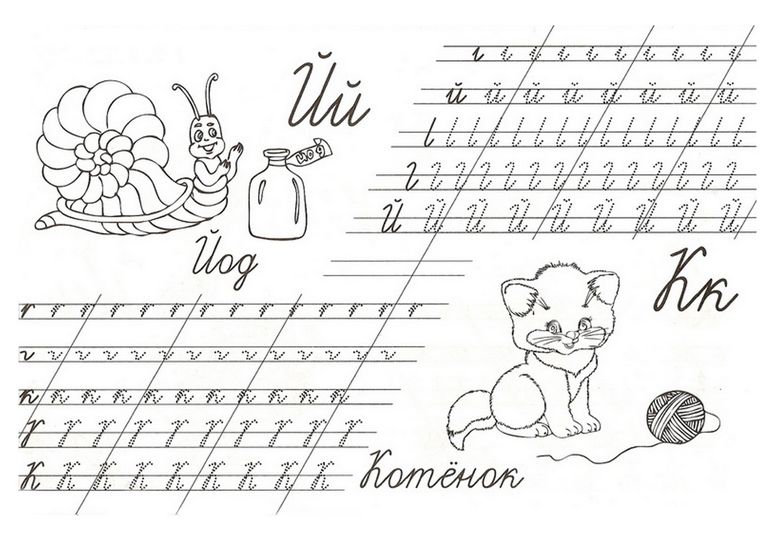 Йй
й й й й й й й й
йод
Й Й Й Й Й Й Й Й Й
Йод
Кк
к к к к к к к к к к к
К К К К К К К К К
Котёнок